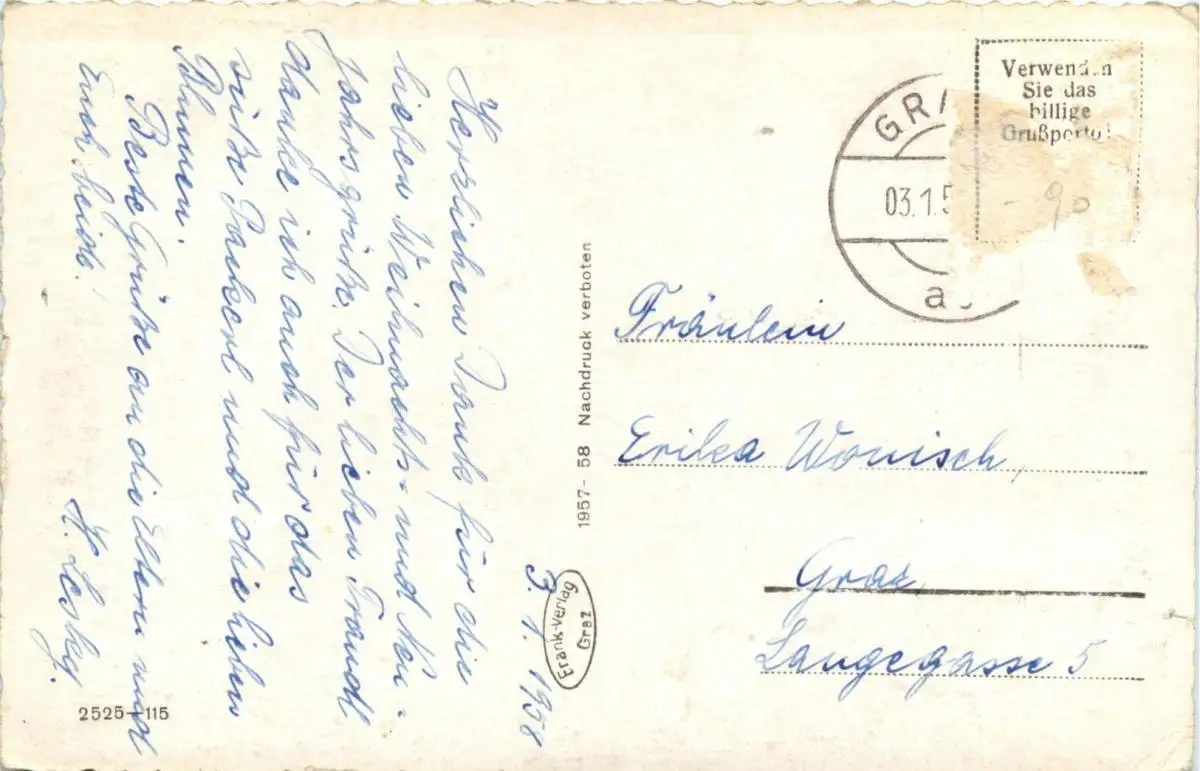 3. 1. 1958
Herzlichen Dank für die
lieben Weihnachts- und Neu-
jahrsgrüße. Der lieben Traudl
danke ich auch für das
süße Packerl und die lieben
Blumen.
Beste Grüße an die Eltern und
Euch beide!
2525-115
1957-58 Nachdruck verboten
Frank-Verlag
Graz
03.1.5
Verwenden
Sie das
billige
Grußporto!
- 90
Fräulein
Erika Wonisch,
Graz
Langegasse 5